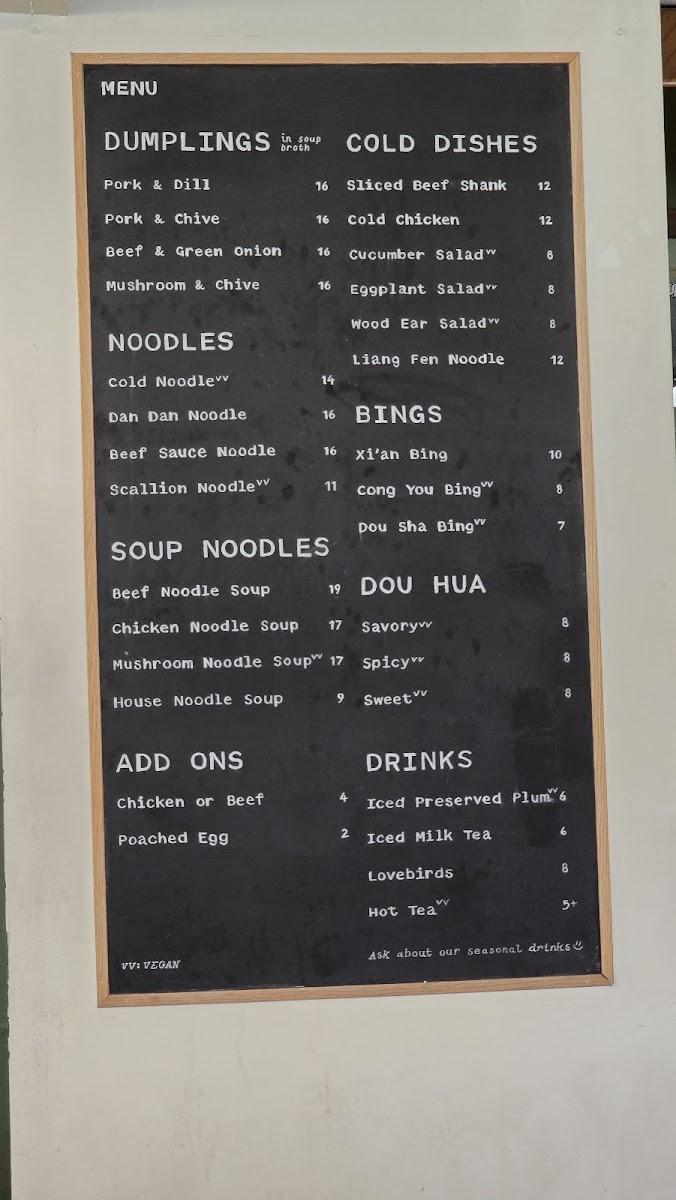 MENU
DUMPLINGS in soup broth
Pork & Dill 16
Pork & Chive 16
Beef & Green Onion 16
Mushroom & Chive 16
NOODLES
Cold Noodleᵛᵛ 14
Dan Dan Noodle 16
Beef Sauce Noodle 16
Scallion Noodleᵛᵛ 11
SOUP NOODLES
Beef Noodle Soup 19
Chicken Noodle Soup 17
Mushroom Noodle Soupᵛᵛ 17
House Noodle Soup 9
ADD ONS
Chicken or Beef 4
Poached Egg 2
VV: VEGAN
COLD DISHES
Sliced Beef Shank 12
Cold Chicken 12
Cucumber Saladᵛᵛ 8
Eggplant Saladᵛᵛ 8
Wood Ear Saladᵛᵛ 8
Liang Fen Noodle 12
BINGS
Xi'an Bing 10
Cong You Bingᵛᵛ 8
Dou Sha Bingᵛᵛ 7
DOU HUA
Savoryᵛᵛ 8
Spicyᵛᵛ 8
Sweetᵛᵛ 8
DRINKS
Iced Preserved Plumᵛᵛ 6
Iced Milk Tea 6
Lovebirds 8
Hot Teaᵛᵛ 5+
Ask about our seasonal drinks☺